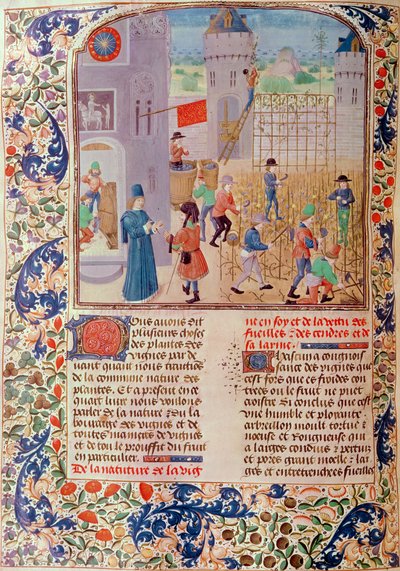 Nous avons dit
plusieurs choses
des plantes des
vignes par de
uant quant nous traictios
de la commune nature des
plantes. Et a present en ce
quart liure nous voulons
parler de la nature & du la
bourage des vignes et de
toutes manieres de vignes
et de tou le prouffit du fruit
en particulier.
De la natuture de la vig
ne en soy et de la vertu des
fueilles & des cendres et de
sa larme.
a congnois
sance des vignes qui
est fors que es froides con
trees ou le fruit ne puet
croistre Si conclus que cest
vne humble et ployante
arbreillon moult tortue &
neuse et rongneuse qui
a larges conduis & pertuis
et pores grant moelle & lar
ges et entretrenchees fueilles